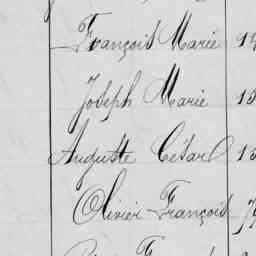 François Marie
Joseph Marie
Auguste César
Olivier François